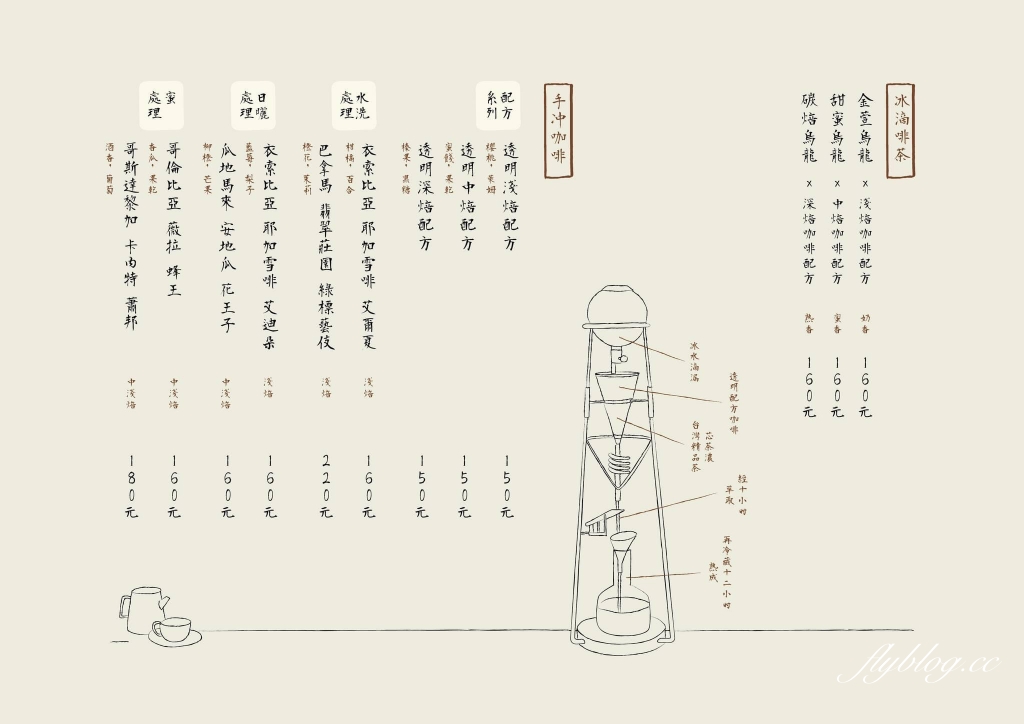 冰滴啡茶
金萱烏龍 x 淺焙咖啡配方 奶香 160元
甜蜜烏龍 x 中焙咖啡配方 蜜香 160元
碳焙烏龍 x 深焙咖啡配方 熟香 160元
冰水滴漏
透明配方咖啡
芯茶濃
台灣精品茶
經十小時
萃取
再冷藏十二小時
熟成
手冲咖啡
配方
系列
透明淺焙配方 150元
櫻桃，萊姆
透明中焙配方 150元
蜜餞，果乾
透明深焙配方 150元
榛果，黑糖
水洗
處理
衣索比亞 耶加雪啡 艾爾夏 淺焙 160元
柑橘，百合
巴拿馬 翡翠莊園 綠標藝伎 淺焙 220元
橙花，茉莉
日曬
處理
衣索比亞 耶加雪啡 艾迪朵 淺焙 160元
藍莓，梨子
瓜地馬來 安地瓜 花王子 中淺焙 160元
柳橙，芒果
蜜
處理
哥倫比亞 薇拉 蜂王 中淺焙 160元
香瓜，果乾
哥斯達黎加 卡內特 蕭邦 中淺焙 180元
酒香，葡萄
flyblog.cc